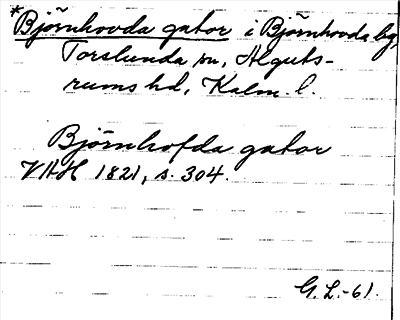 *Björnhovda gator i Björnhovda by,
Torslunda sn, Alguts-
rums hd, Kalm. l.
Björnhofda gator
VHH 1821, s. 304.
G.L.-61.